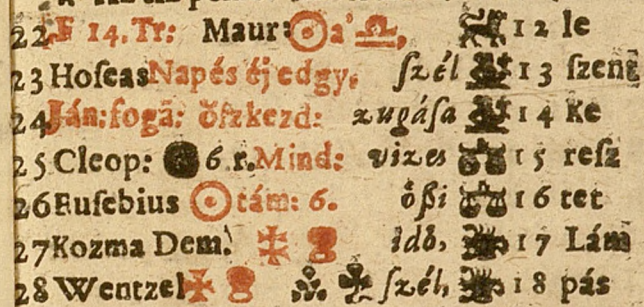 22 F 14. Tr: Maur: ☉ a' ♎, 12 le
23 Hoſeas Nap és éj edgy, ſzél 13 ſzent
24 Ján: fogā: őſzkezd: zugáſa 14 ke
25 Cleop: 6 r. Mind: vizes 15 reſz
26 Euſebius ☉ tám: 6. ößi 16 tet
27 Kozma Dem. idő, 17 Lám
28 Wentzel ſzél, 18 pás